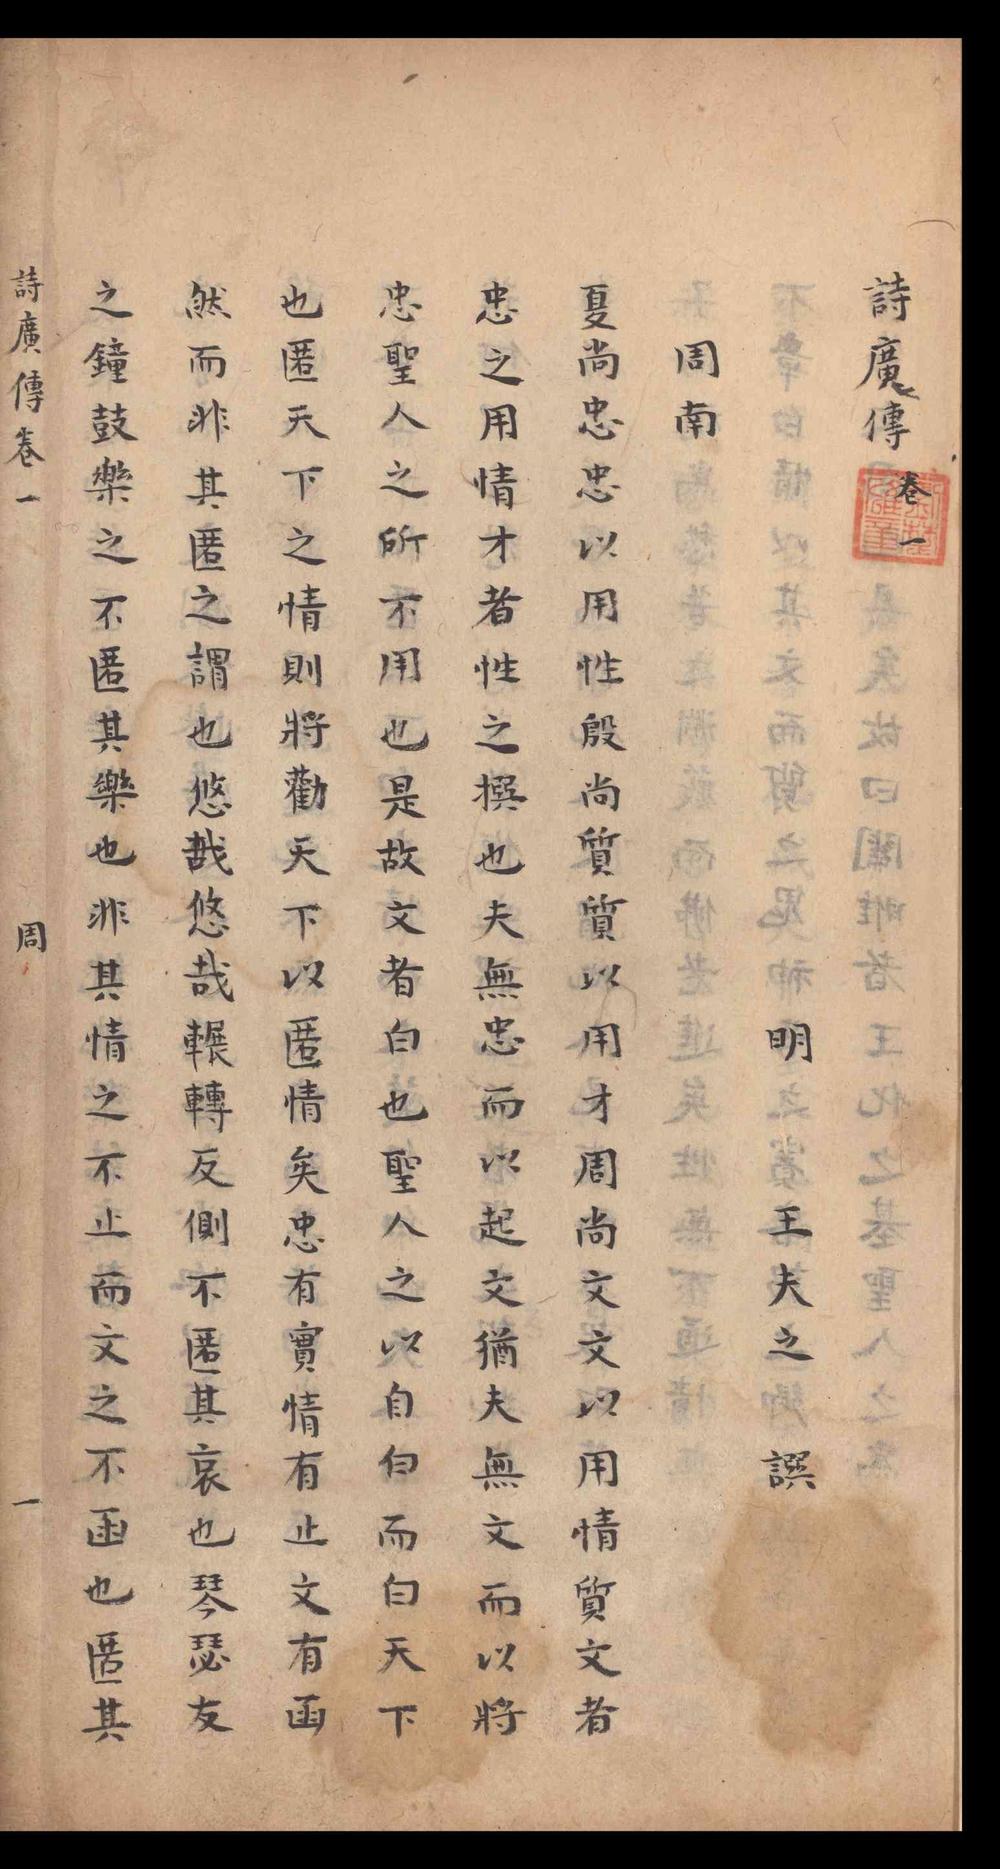 詩廣傳卷一
明王夫之譔
周南
夏尚忠忠以用性殷尚質質以用才周尚文文以用情質文者
忠之用情才者性之撰也夫無忠而以起文猶夫無文而以將
忠聖人之所不用也是故文者白也聖人之以自白而白天下
也匿天下之情則將勸天下以匿情矣忠有實情有止文有函
然而非其匿之謂也悠哉悠哉輾轉反側不匿其哀也琴瑟友
之鐘鼓樂之不匿其樂也非其情之不止而文之不函也匿其
詩廣傳卷一
周
一